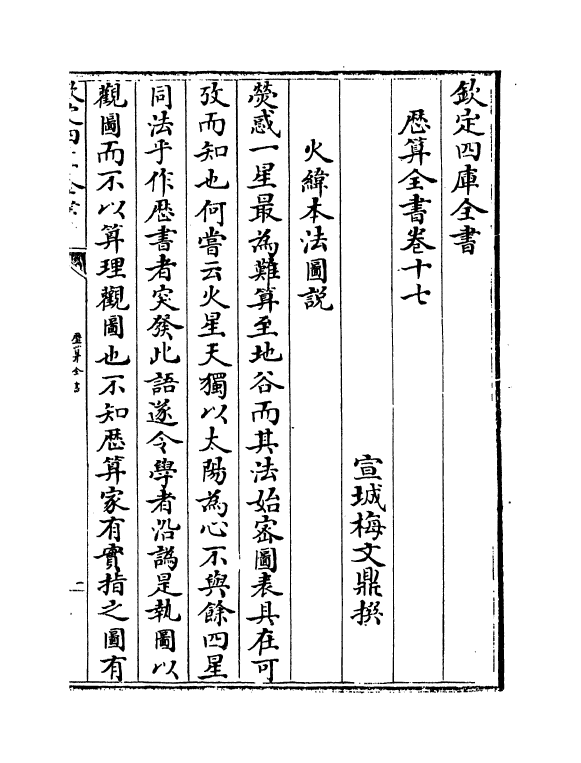 欽定四庫全書
歴算全書卷十七
宣城梅文鼎撰
火緯本法圖説
熒惑一星最為難算至地谷而其法始密圖表具在可
攷而知也何嘗云火星天獨以太陽為心不與餘四星
同法乎作歴書者突發此語遂令學者沿譌是執圖以
觀圖而不以算理觀圖也不知歴算家有實指之圖有
歴算全書